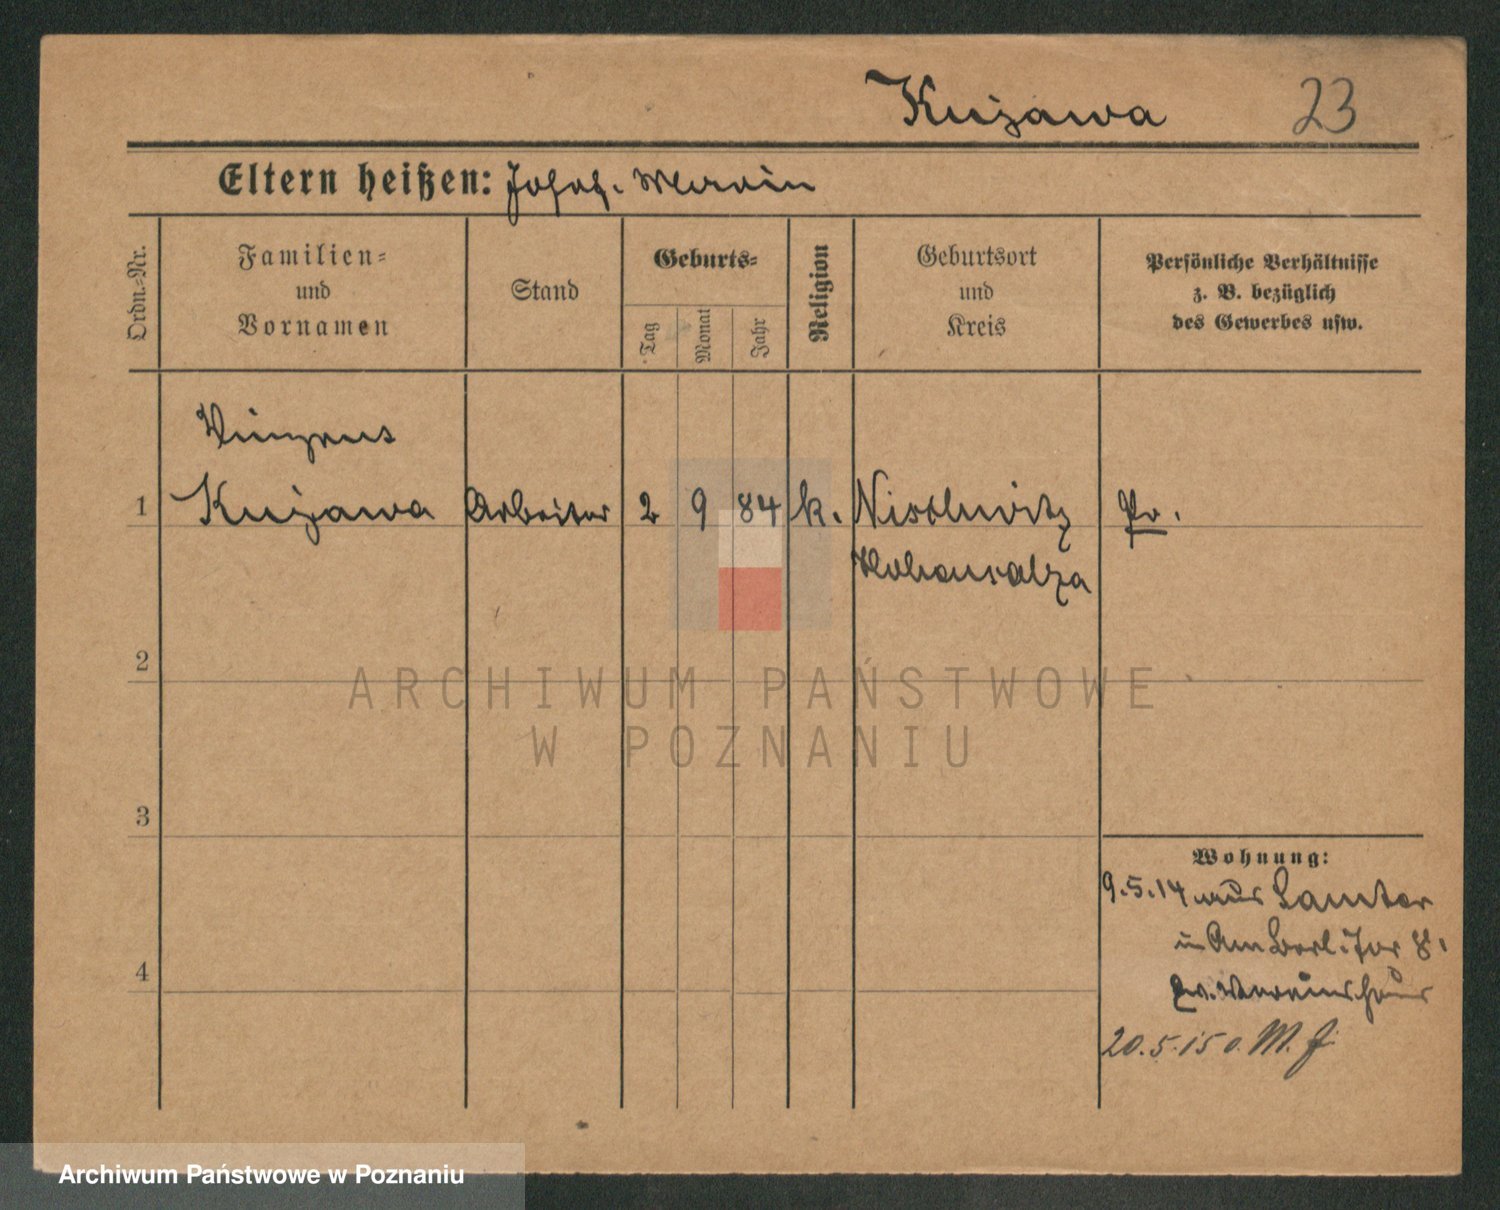 Kujawa 23
Eltern heißen: Josef. Maria
Ordn.-Nr.
Familien-
und
Vornamen
Stand
Geburts-
Tag
Monat
Jahr
Religion
Geburtsort
und
Kreis
Persönliche Verhältnisse
z. B. bezüglich
des Gewerbes usw.
Vinzens
1 Kujawa Arbeiter 2 9 84 k. Pr.
Hohensalza
2
ARCHIWUM PAŃSTWOWE
W POZNANIU
3
Wohnung:
9.5.14 aus Samter
in Am Berl. Tor 8.
4
Ev. Vereinshaus
20.5.15 o. M. f.
Archiwum Państwowe w Poznaniu